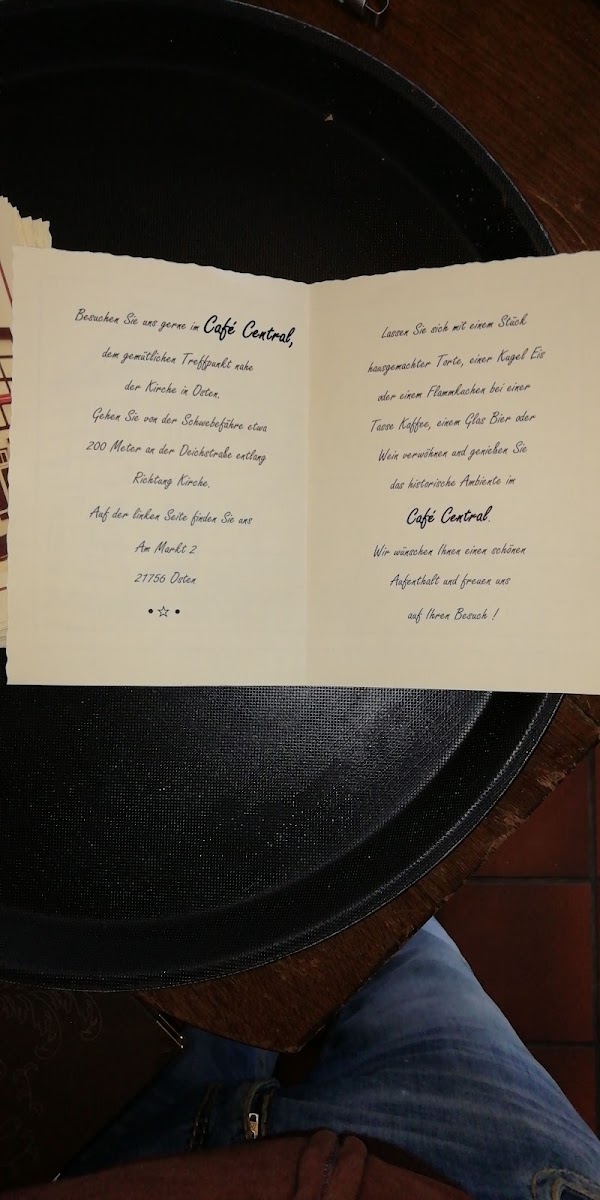 Besuchen Sie uns gerne im Café Central,
dem gemütlichen Treffpunkt nahe
der Kirche in Osten.
Gehen Sie von der Schwebefähre etwa
200 Meter an der Deichstraße entlang
Richtung Kirche.
Auf der linken Seite finden Sie uns
Am Markt 2
21756 Osten
•☆•
Lassen Sie sich mit einem Stück
hausgemachter Torte, einer Kugel Eis
oder einem Flammkuchen bei einer
Tasse Kaffee, einem Glas Bier oder
Wein verwöhnen und genießen Sie
das historische Ambiente im
Café Central.
Wir wünschen Ihnen einen schönen
Aufenthalt und freuen uns
auf Ihren Besuch !